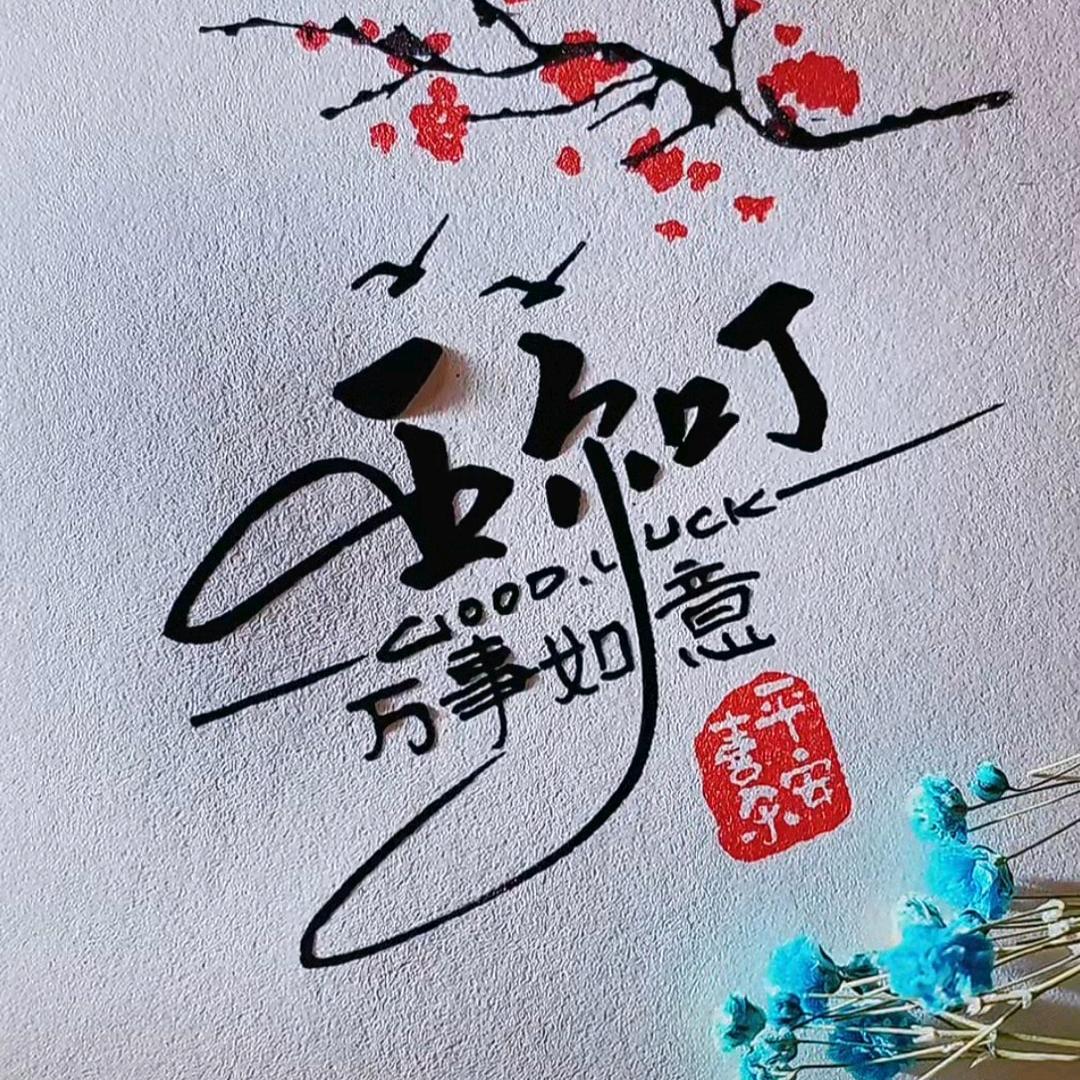 GOOD.LUCK
万事如意
平安
喜乐